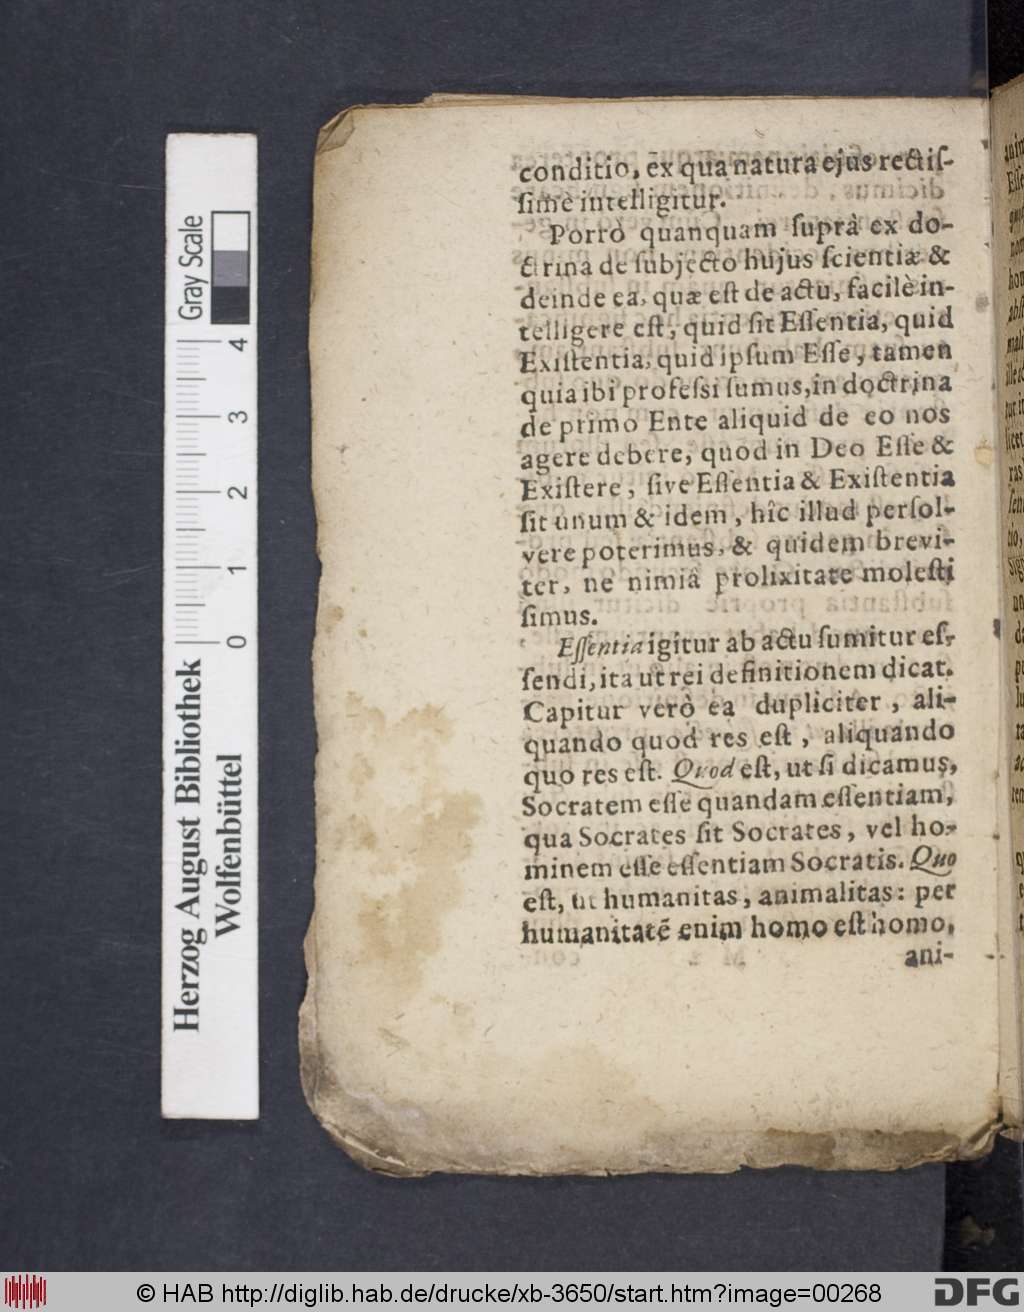 conditio, ex qua natura ejus rectiſ-
ſimè intelligitur.
Porrò quanquam ſuprà ex do-
ctrina de ſubjecto hujus ſcientiæ &
deinde ea, quæ eſt de actu, facilè in-
telligere eſt, quid ſit Eſſentia, quid
Exiſtentia, quid ipſum Eſſe, tamen
quia ibi profeſsi ſumus, in doctrina
de primo Ente aliquid de eo nos
agere debere, quod in Deo Eſſe &
Exiſtere, ſive Eſſentia & Exiſtentia
ſit unum & idem, hîc illud perſol-
vere poterimus, & quidem brevi-
ter, ne nimiâ prolixitate moleſti
ſimus.
Eſſentia igitur ab actu ſumitur eſ-
ſendi, ita ut rei definitionem dicat.
Capitur verò ea dupliciter, ali-
quando quod res eſt, aliquando
quo res eſt. Quod eſt, ut ſi dicamus,
Socratem eſſe quandam eſſentiam,
qua Socrates ſit Socrates, vel ho-
minem eſſe eſſentiam Socratis. Quo
eſt, ut humanitas, animalitas: per
humanitatē enim homo eſt homo,
ani-
Herzog August Bibliothek
Wolfenbüttel
Gray Scale
0 1 2 3 4
© HAB http://diglib.hab.de/drucke/xb-3650/start.htm?image=00268
DFG